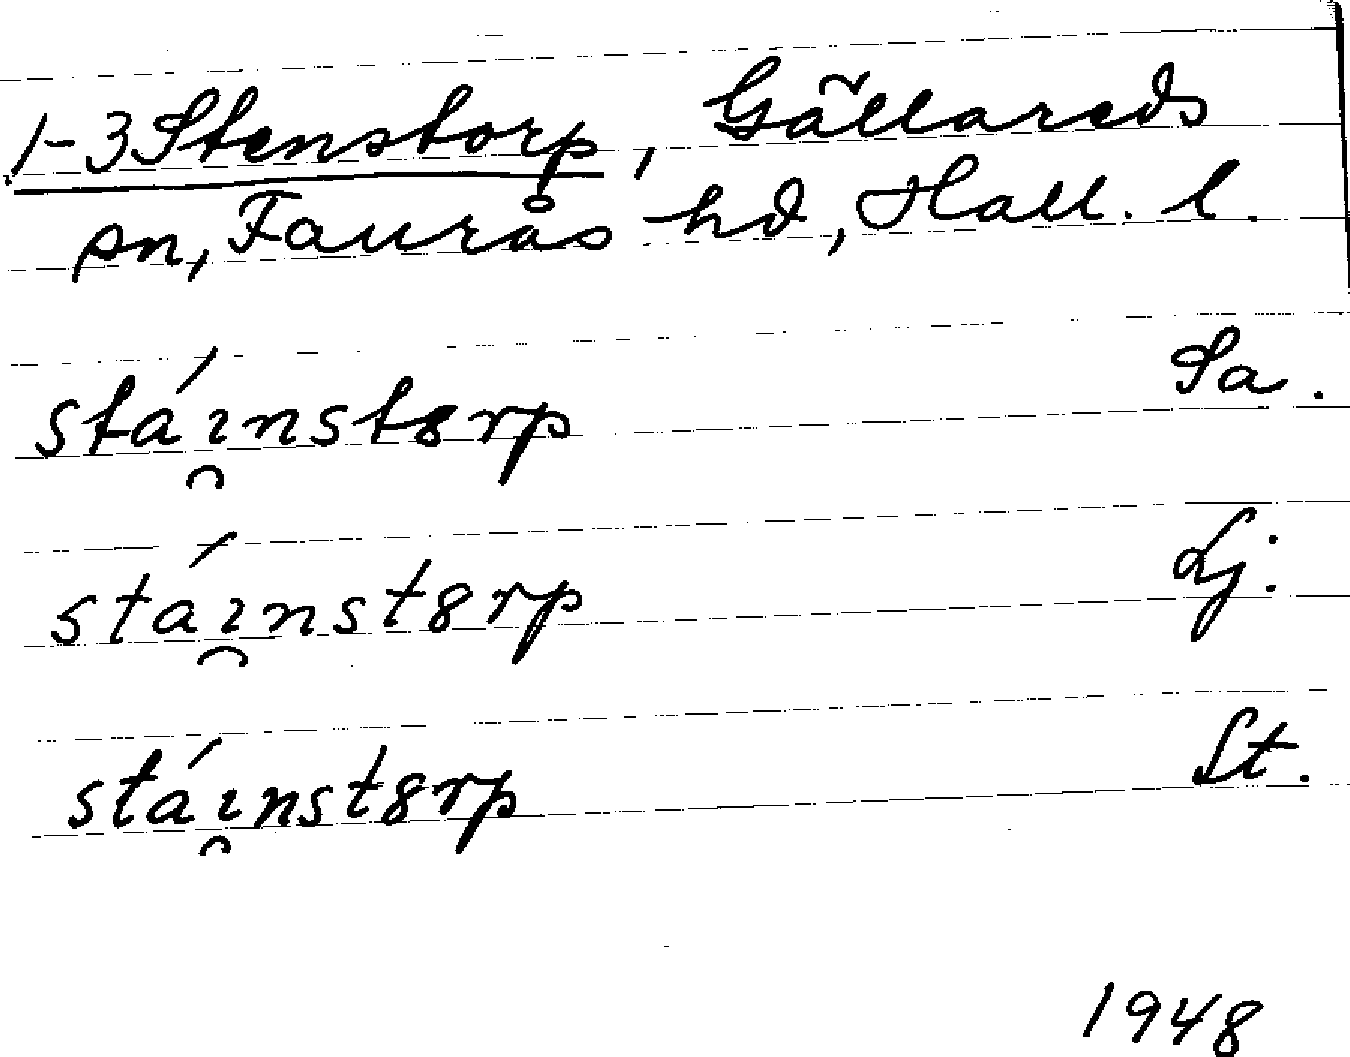 1-3 Stenstorp, Gällareds
sn, Faurås hd, Hall. l.
stá2̯nst8rp Sa.
stá2̯nst8rp Lj.
stá2̯nst8rp St.
1948